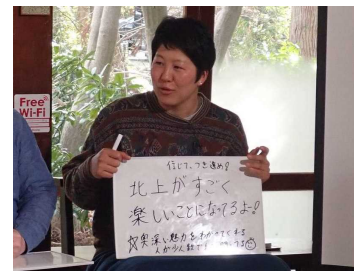 Free
Wi-Fi
信じて、つき進め!
北上がすごく
楽しいことになってるよ!
深い魅力をわかってくれる